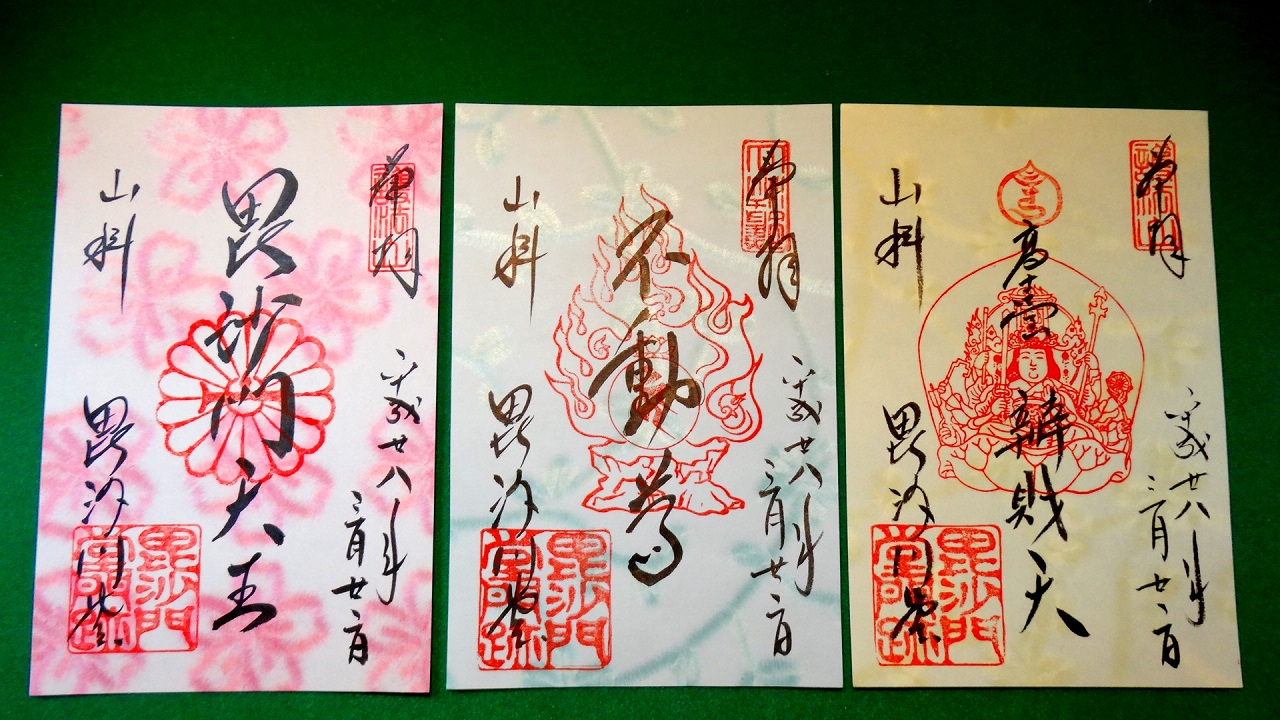 奉拝
平成廿八年
三月廿二日
毘沙門天王
山科
毘沙門堂
毘沙門
堂門跡
奉拝
平成廿八年
三月廿二日
不動尊
山科
毘沙門堂
毘沙門
堂門跡
奉拝
平成廿八年
三月廿二日
高臺辨財天
山科
毘沙門堂
毘沙門
堂門跡